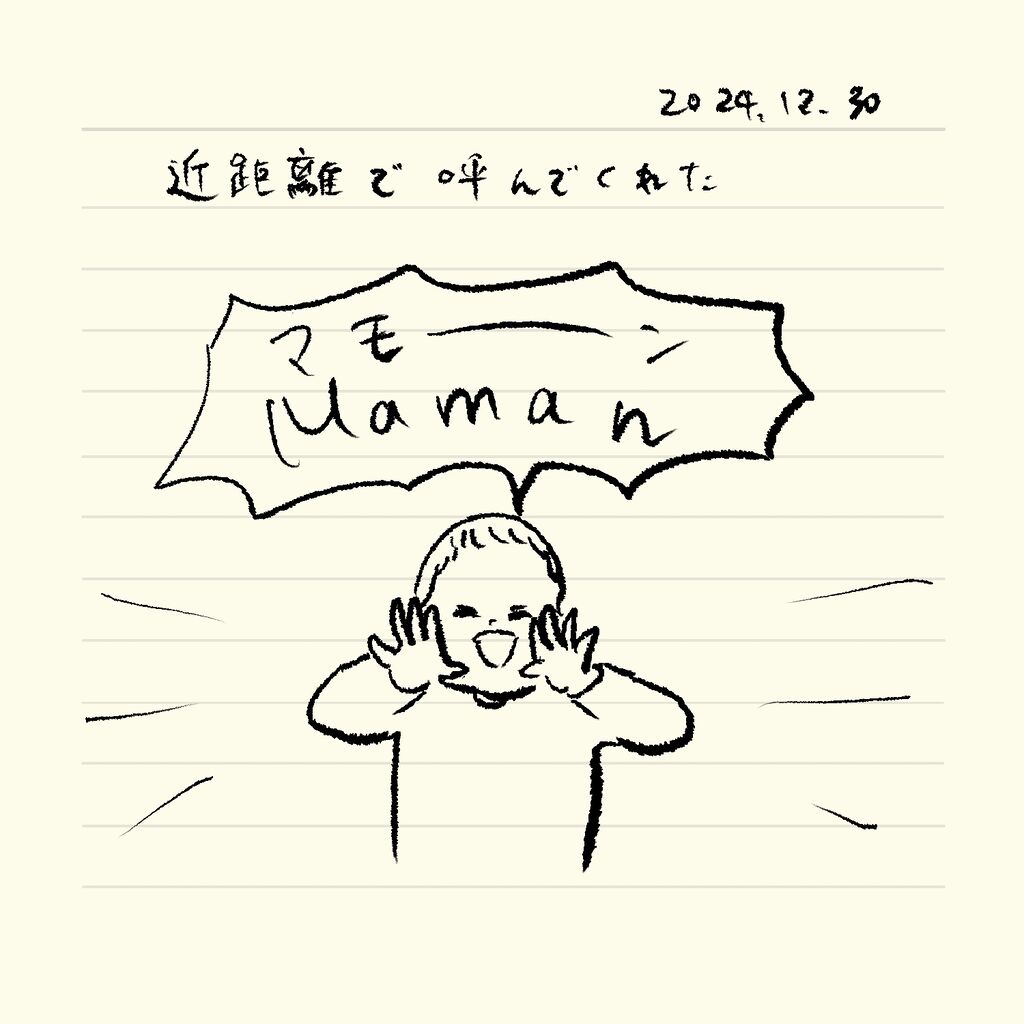 2024.12.30
近距離で呼んでくれた
マモーン
Maman